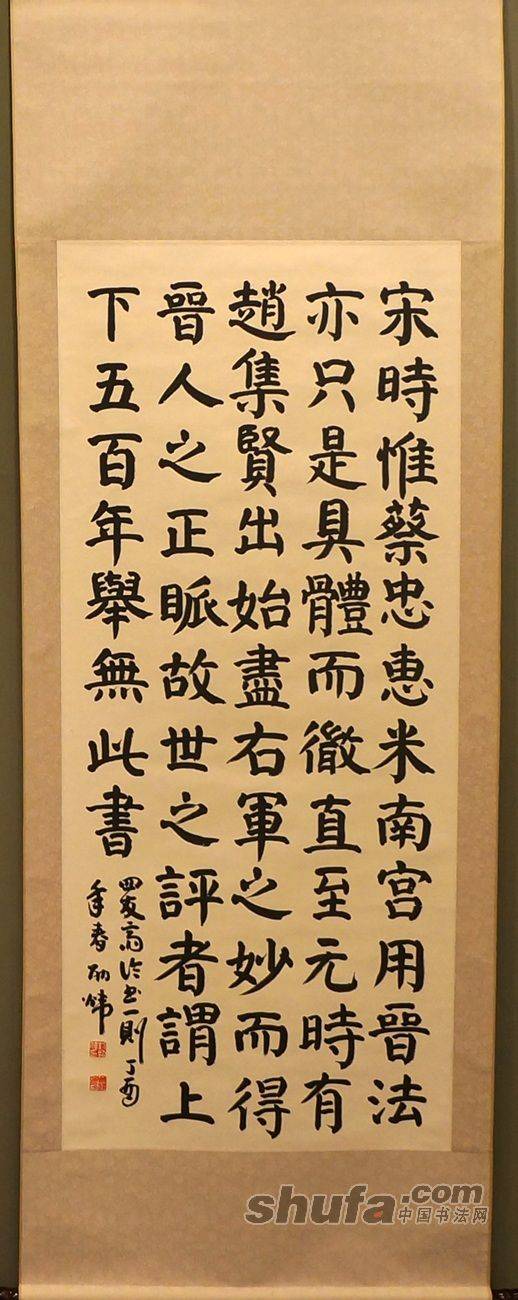 宋時惟蔡忠惠米南宮用晉法
亦只是具體而微直至元時有
趙集賢出始盡右軍之妙而得
晉人之正脈故世之評者謂上
下五百年舉無此書
四友齋論書一則 丁酉
季春
shufa.com
中国书法网